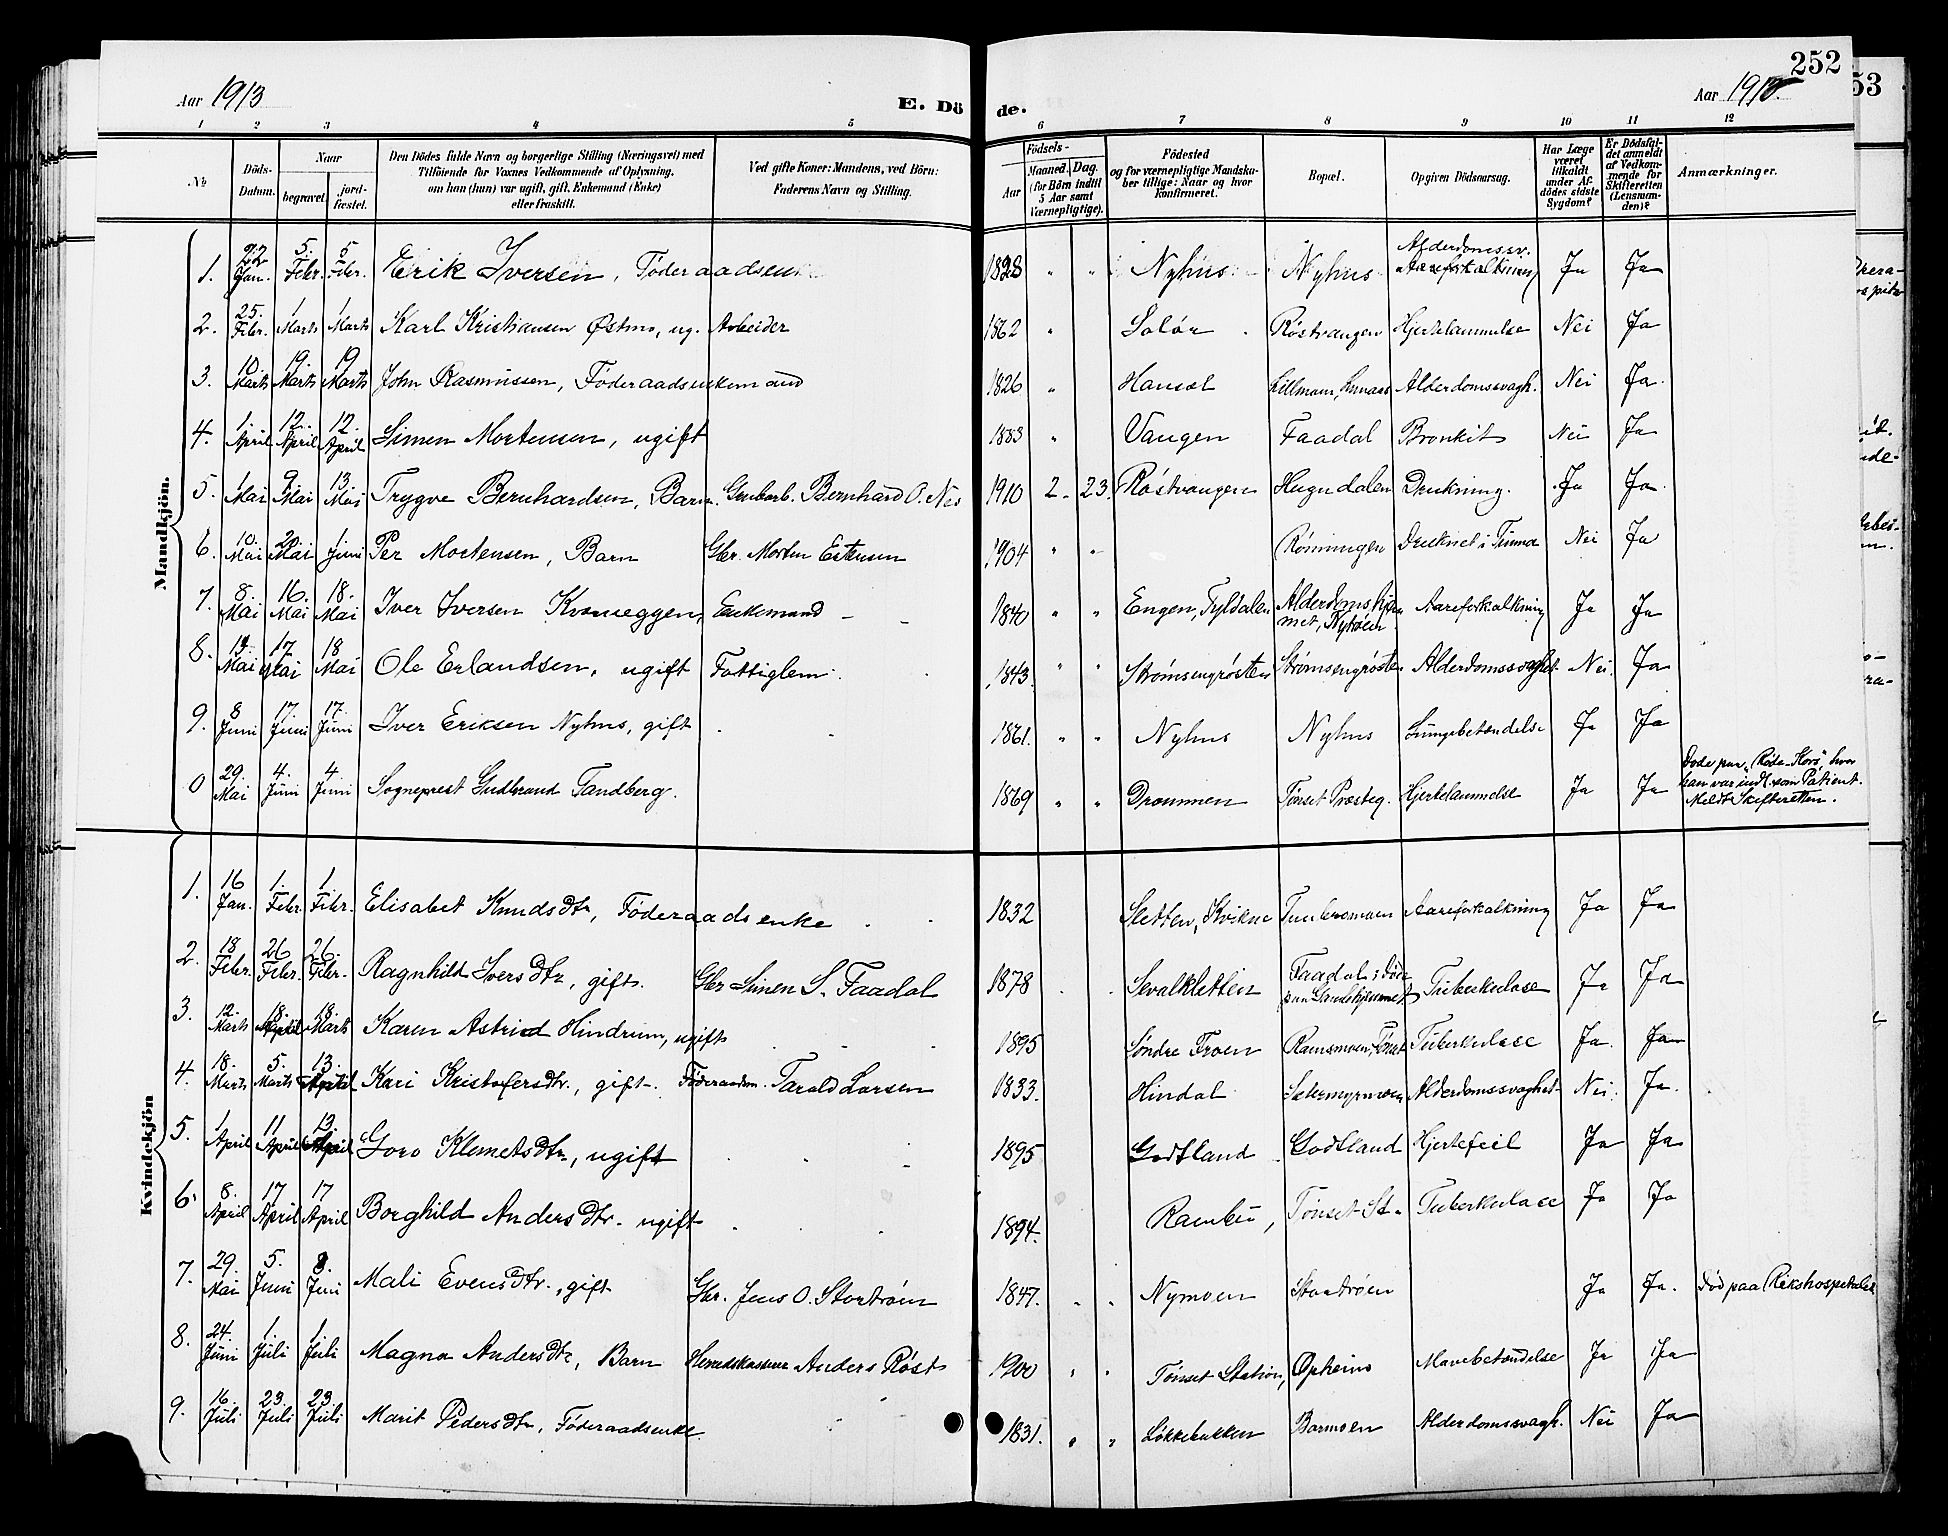 252
53
Aar 1913
E. Dö
de.
Aar 1913
1 2 3 4 5 6 7 8 9 10 11 12
No
Döds-Datum.
Naar
begravet.
jordfæstet.
Den Dödes fulde Navn og borgerlige Stilling (Næringsvei) med Tilföiende for Voxnes Vedkommende af Oplysning, om han (hun) var ugift, gift, Enkemand (Enke) eller fraskilt.
Ved gifte Koner: Mandens, ved Börn: Faderens Navn og Stilling.
Födsels-
Aar
Maaned. Dag.
(for Börn indtil 5 Aar samt Værnepligtige).
Födested og for værnepligtige Mandskaber tillige: Naar og hvor konfirmeret.
Bopæl.
Opgiven Dödsaarsag.
Har Læge været tilkaldt under Afdödes sidste Sygdom?
Er Dödsfaldet anmeldt af Vedkommende for Skifteretten (Lensmanden)?
Anmærkninger.
Mandkjön.
1. 22 Jan. 5. Febr. 5 Febr. Erik Iversen, Föderaadsm 1828 " " Nyhus Nyhus Alderdomssv. Aareforkalkning Ja Ja
2. 25. Febr. 1 Marts 1 Marts Karl Kristiansen Østmo, ug. Arbeider 1862 " Solør Røstvangen Hjertelammelse Nei Ja
3. 10 Marts 19. Marts 19 Marts John Rasmussen, Föderaadsenkemand 1826 " Hansæl Lillmoen, Alderdomssvagh. Nei Ja.
4. 1. April 12. April 12. April Simen Mortensen, ugift 1883 " Vangen Faadal Bronkit Nei Ja
5. 1 Mai 9 Mai 13. Mai Trygve Bernhardsen, Barn. Grubearb. Bernhard O. Nes 1910 2. 23. Røstvangen Hugudalen Drukning. Ja Ja.
6. 10. Mai 20. Mai 1 Juni Per Mortensen, Barn Gbr. Morten Estensen 1904 " " Rønningen Druknet i Tunna Nei Ja
7. 8. Mai 16. Mai 18. Mai Iver Iversen Kvæneggen, Enkemand 1840 " " Engen, Tyldalen Alderdomshjemmet, Nytrøen Aareforkalkning Ja Ja
8. 13. Mai 17 Mai 18 Mai Ole Erlandsen, ugift Fattiglem. 1843. " " Strømsengrøsten Strømsengrøsten Alderdomssvaghet. Nei. Ja
9. 8 Juni 17 Juni 17. Juni Iver Eriksen Nyhus, gift 1861. " " Nyhus Nyhus Lungebetændelse Ja Ja
0 29. Mai 4. Juni 4 Juni Sogneprest Gudbrand Tandberg. 1869 " " Drammen Tønset Præsteg. Hjertelammelse Ja Ja Døde paa "Røde-Kors", hvor han var indl. som Patient. Meldt Skifteretten.
Kvindekjön
1. 16 Jan. 1. Febr. 1. Febr. Elisabet Knudsdtr, Föderaadsenke 1832 Sletten, Kvikne Tunbrumoen Aareforkalkning Ja Ja
2. 18 Febr. 26 Febr. 26. Febr. Ragnhild Iversdtr, gift. Gbr Simen S. Faadal 1878 Sevalkletten Faadal; døde paa Sanitetshjemmet Tuberkulose Ja Ja
3. 12. Marts 18. 18. Marts Karen Astrid Hindrum, ugift 1895 Søndre Troen Ramsmoen, Tönset Tuberkulose Ja. Ja
4. 18. Marts 5. Marts 13. April Kari Kristofersdtr., gift. Föderaadsm. Tarald Larsen 1833. Hindal Sætermyrmoen Alderdomssvaghet Nei. Ja.
5. 1 April 11 April 13. April Goro Klemetsdtr, ugift 1895 Godtland Godtland Hjertefeil Ja Ja
6. 8. April 17 April 17 April Borghild Andersdtr. ugift 1894. Rambu, Tønset St. Tuberkulose Ja Ja
7. 29. Mai 5. Juni 8. Juni Mali Evensdtr., gift Gbr. Jens O. Stortrøen 1847. Nymoen Stortrøen Ja Ja. Död paa Rikshospitalet
8. 24. Juni 1. Juli 1 Juli Magna Andersdtr, Barn Herredskasserer Anders Røst 1900 " Tønset Station, Opheim Mavebetændelse Ja Ja
9. 16. Juli 23. Juli 23. Juli Marit Pedersdtr, Föderaadsenke 1831. " " Løkkebakken Barmoen Alderdomssvagh. Nei Ja